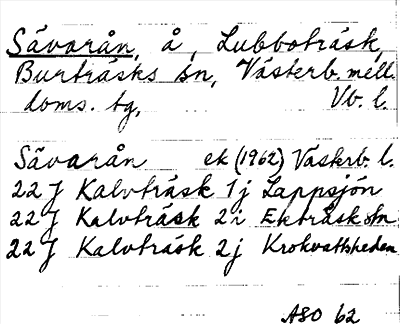 Sävarån, å, Lubboträsk,
Burträsks sn, Västerb. mell.
doms. tg, Vb. l.
Sävarån ek (1962) Västerb. l.
22 J Kalvträsk 1 j Lappsjön
22 J Kalvträsk 2 i Ekträsk stn
22 J Kalvträsk 2 j Krokvattsheden
ASO 62